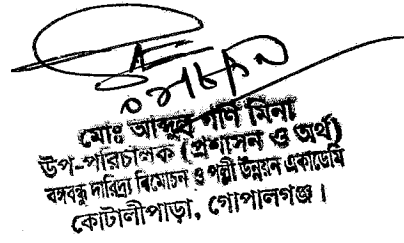 মোঃ আব্দুল গণি মিনা
উপ-পরিচালক (প্রশাসন ও অর্থ)
বঙ্গবন্ধু দারিদ্র্য বিমোচন ও পল্লী উন্নয়ন একাডেমি
কোটালীপাড়া, গোপালগঞ্জ।